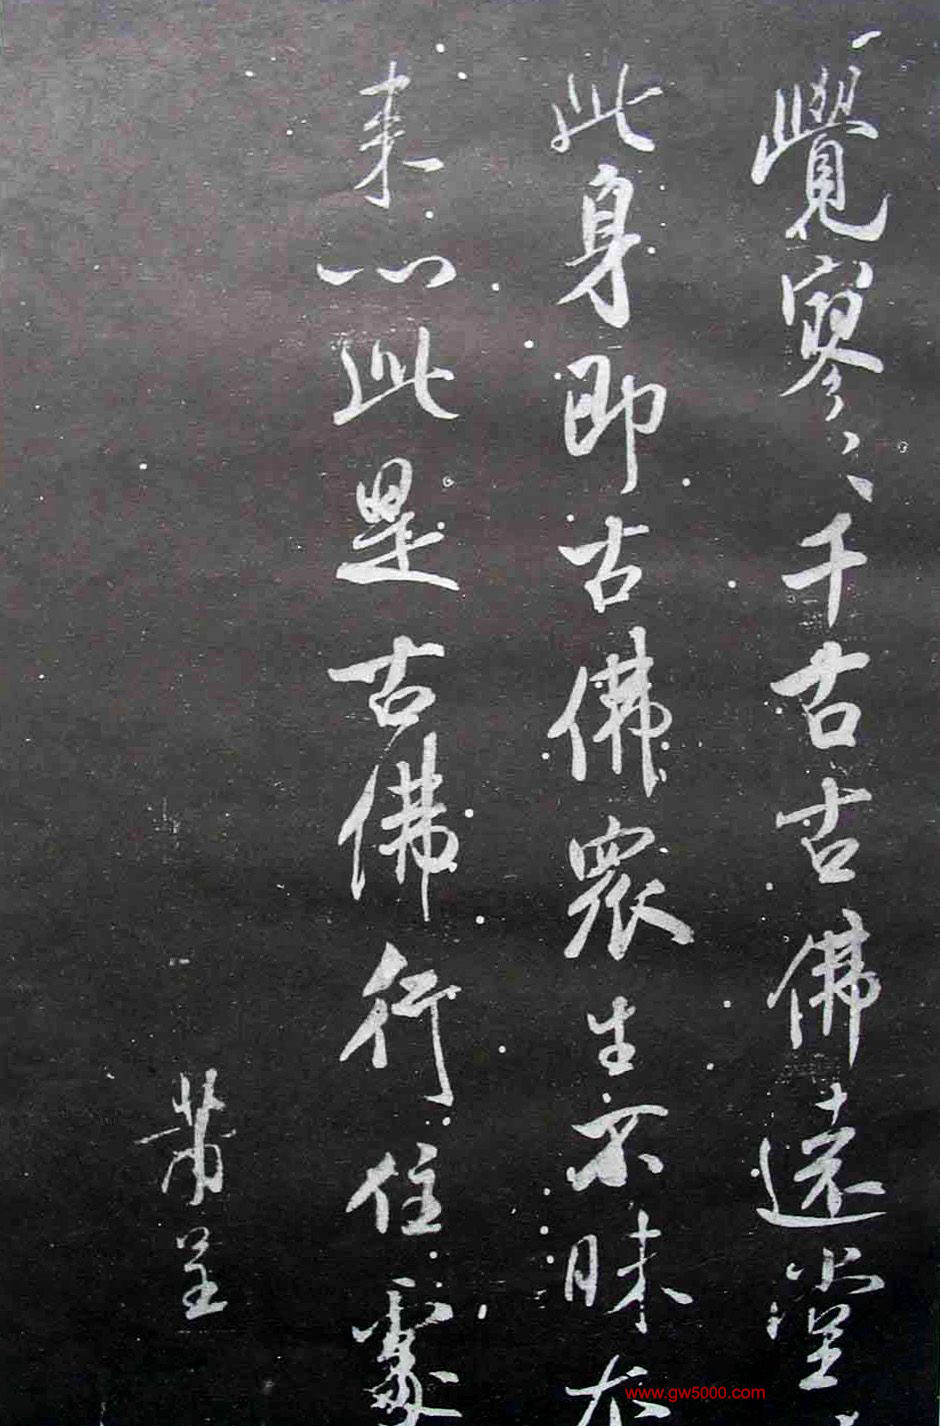 覺寥〻千古古佛遠堂
此身即古佛衆生不昧本
来心此是古佛行住處
芾呈
www.gw5000.com